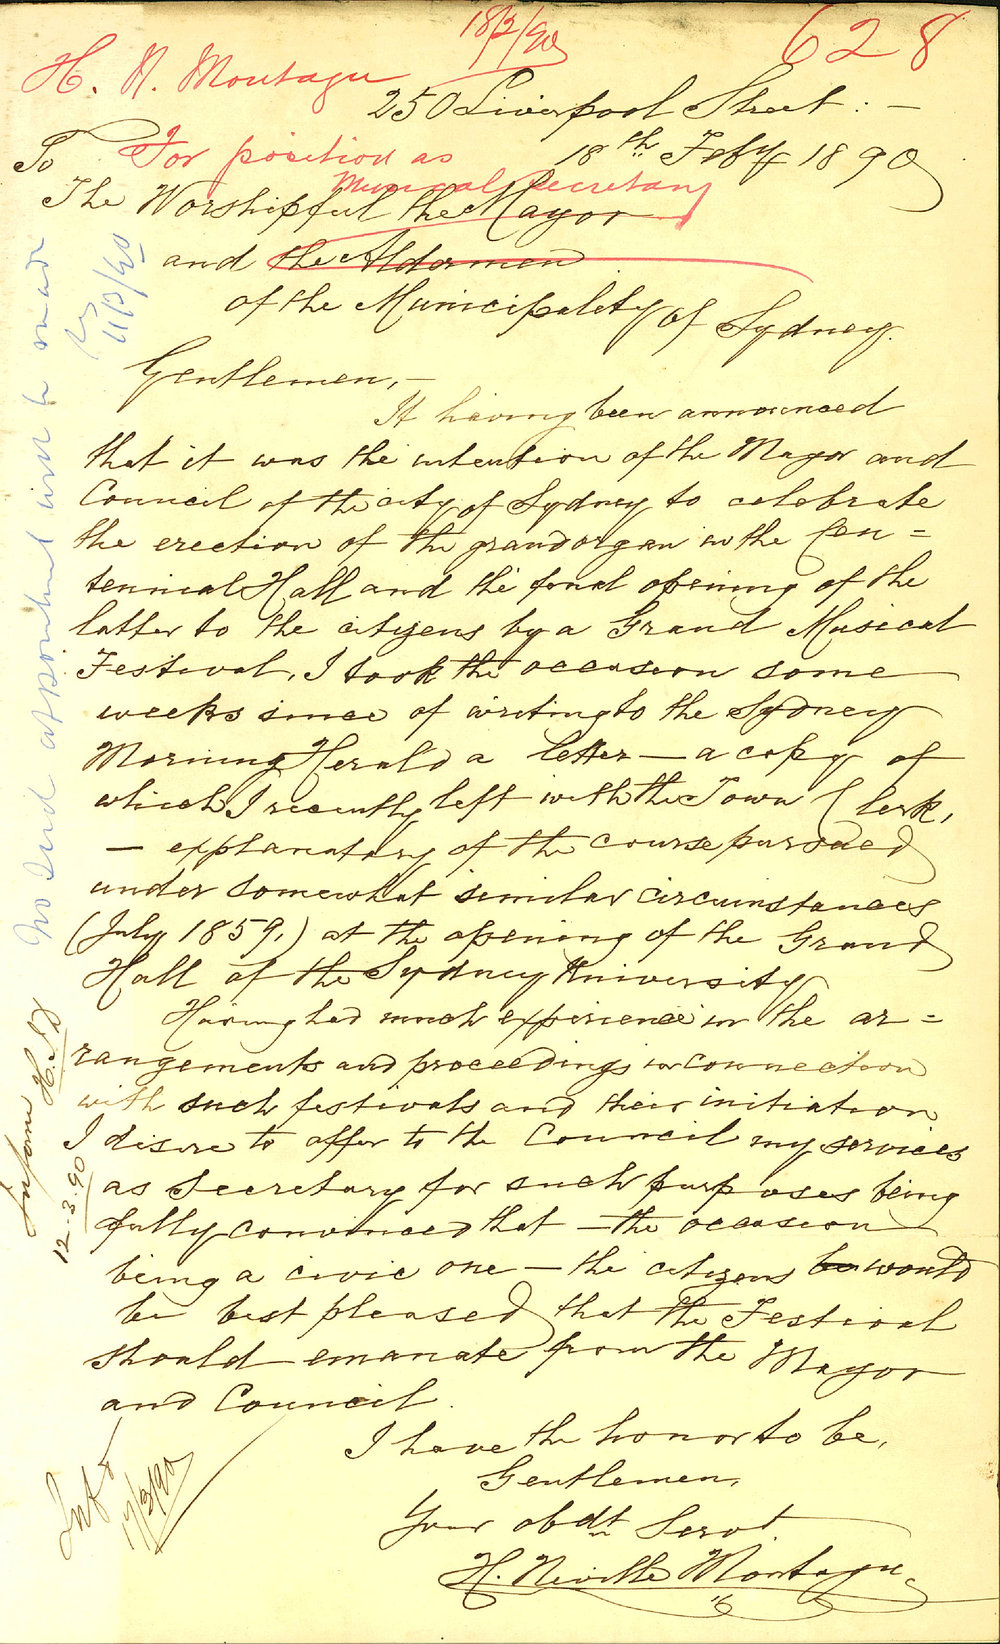 18/2/90
628
H. N. Montagu
250 Liverpool Street : —
To
For position as
18th Feby 1890
Musical Secretary
The Worshipful the Mayor
and the Aldermen
of the Municipality of Sydney.
Gentlemen, —
It having been announced
that it was the intention of the Mayor and
Council of the city of Sydney to celebrate
the erection of the grand organ in the Cen=
tennial Hall and the final opening of the
latter to the citizens by a Grand Musical
Festival, I took the occasion some
weeks since of writing to the Sydney
Morning Herald a letter — a copy of
which I recently left with the Town Clerk,
— explanatory of the course pursued
under somewhat similar circumstances
(July 1859,) at the opening of the Grand
Hall of the Sydney University
Having had much experience in the ar=
rangements and proceedings in connection
with such festivals and their initiation
I desire to offer to the Council my services
as Secretary for such purposes being
fully convinced that — the occasion
being a civic one — the citizens be would
be best pleased that the Festival
should emanate from the Mayor
and Council.
I have the honor to be,
Gentlemen,
Your obdt Servt.
H. Neville Montagu
No such appointment will be made
11/3/90
Inform
12.3.90
Infd
17/3/90